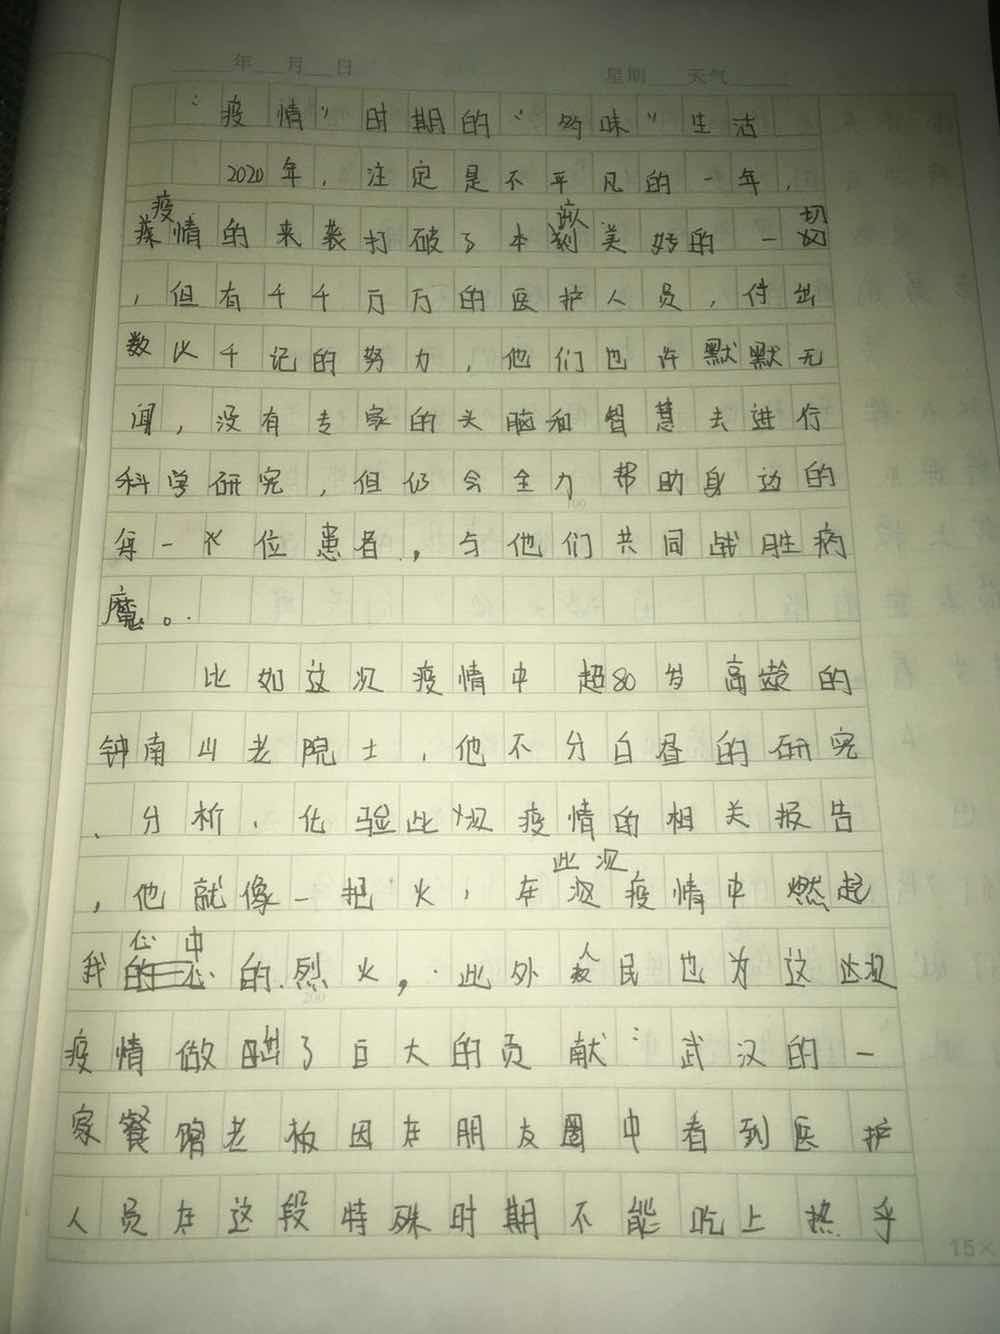 年 月 日 星期 天气
“疫情”时期的“多味”生活
2020年，注定是不平凡的一年，
疫情的来袭打破了本应美好的一切
，但有千千万万的医护人员，付出
数以千记的努力，他们也许默默无
闻，没有专家的头脑和智慧去进行
科学研究，但仍会全力帮助身边的
每一位患者，与他们共同战胜病
魔。
比如这次疫情中超80岁高龄的
钟南山老院士，他不分白昼的研究
、分析、化验此次疫情的相关报告
，他就像一把火，在此次疫情中燃起
我心中的烈火，此外人民也为这次
疫情做出了巨大的贡献：武汉的一
家餐馆老板因在朋友圈中看到医护
人员在这段特殊时期不能吃上热乎
100
200
15×